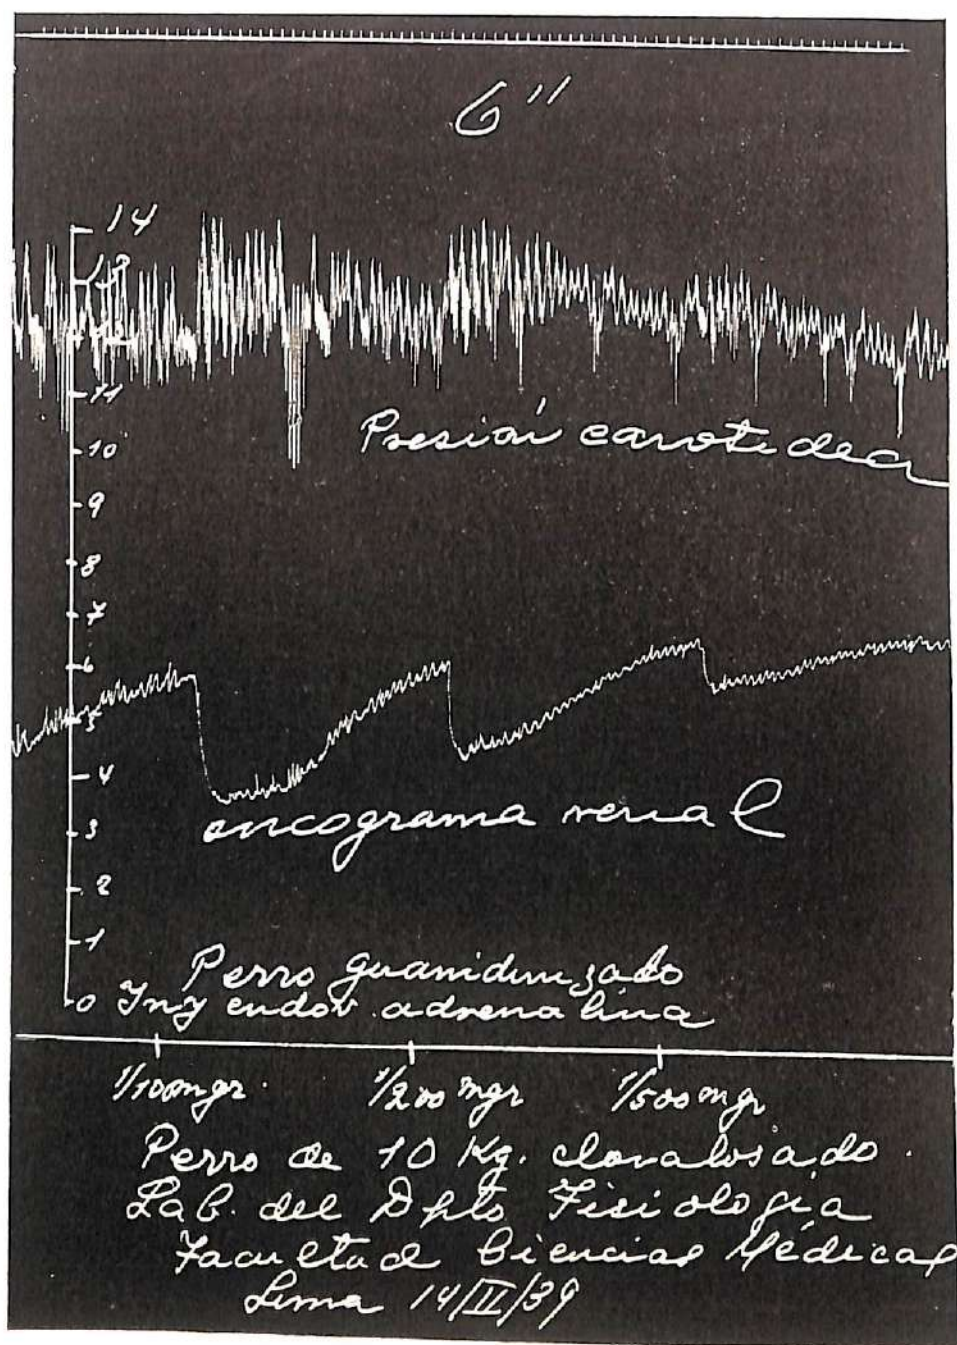 6"
14
13
12
11
10
9
8
7
6
5
4
3
2
1
0
Presión carotidea
oncograma renal
Perro guanidinizado
Iny endov. adrenalina
1/100 mgr. 1/200 mgr 1/500 mgr
Perro de 10 Kg. cloralosado.
Lab. del Dpto Fisiología
Facultad Ciencias Médicas
Lima 14/II/39